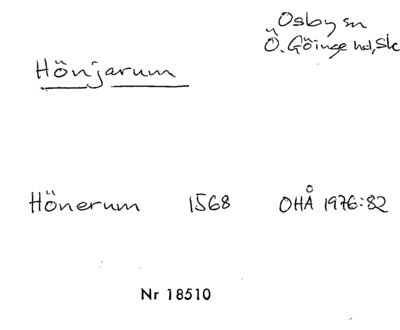 Osby sn
Ö. Göinge hd, Sk
Hönjarum
Hönerum 1568 OHÅ 1976:82
Nr 18510